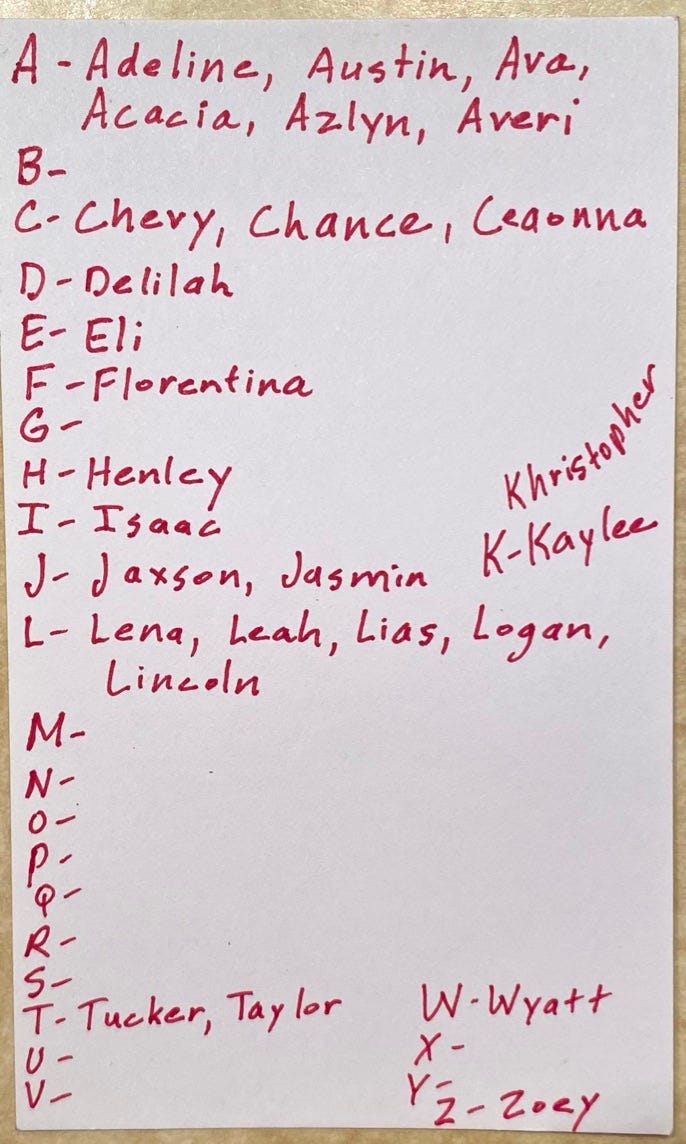 A - Adeline, Austin, Ava,
Acacia, Azlyn, Averi
B-
C- Chevy, Chance, Ceaonna
D- Delilah
E- Eli
F - Florentina
G -
H - Henley
I - Isaac
J- Jaxson, Jasmin
Khristopher
K- Kaylee
L- Lena, Leah, Lias, Logan,
Lincoln
M-
N-
O-
P-
Q-
R-
S-
T- Tucker, Taylor
U-
V-
W- Wyatt
X-
Y-
Z- Zoey